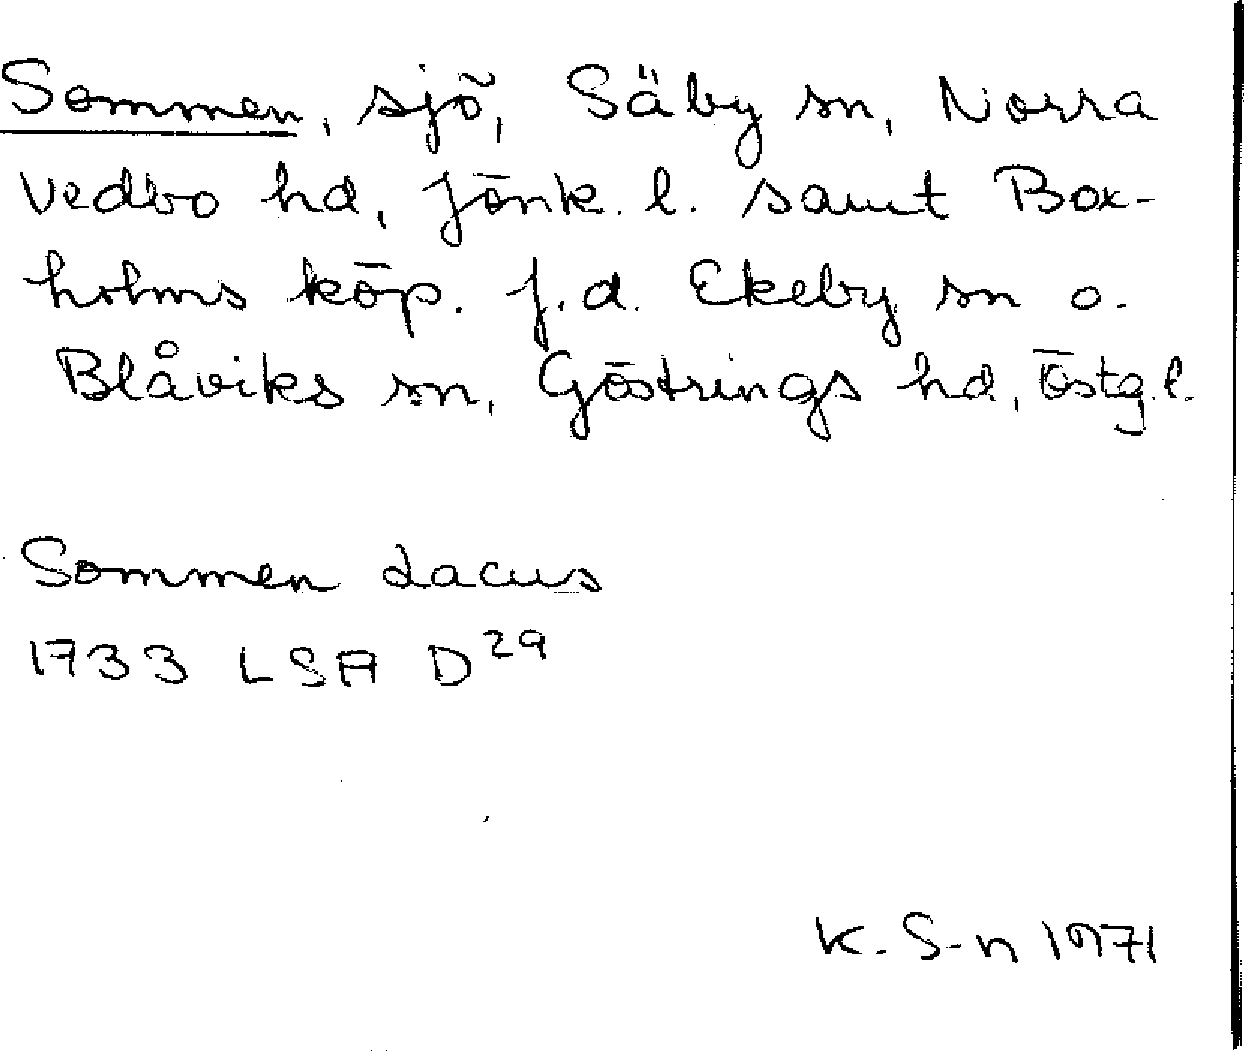 Sommen, sjö, Säby sn, Norra
Vedbo hd, Jönk. l. samt Box-
holms köp. f.d. Ekeby sn o.
Blåviks sn, Göstrings hd, Östg.l.
Sommen Lacus
1733 LSA D29
K. S-n 1971